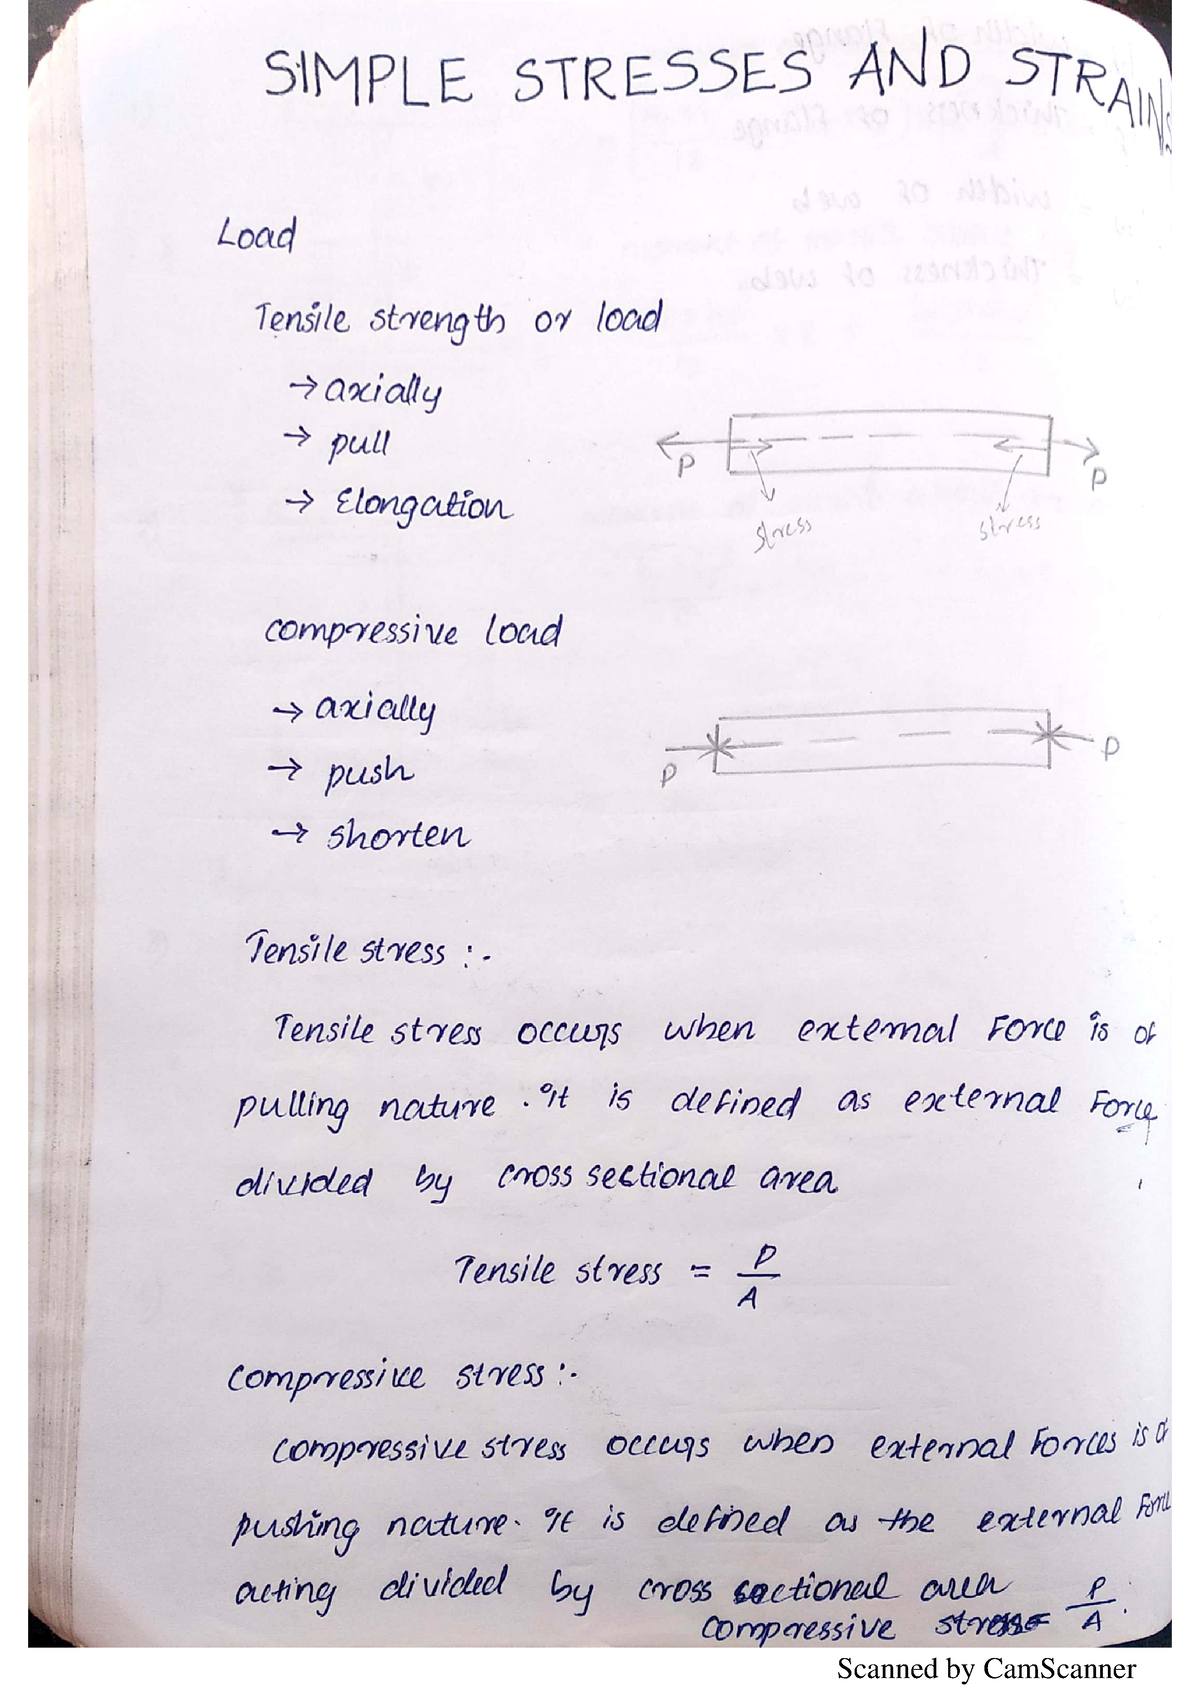 SIMPLE STRESSES AND STRAINS
Load
Tensile strength or load
→ axially
→ pull
→ Elongation
P
P
stress
stress
compressive load
→ axially
→ push
→ shorten
P
P
Tensile stress :-
Tensile stress occurs when external Force is of
pulling nature. it is defined as external Force
divided by cross sectional area
Tensile stress = P/A
compressive stress :-
compressive stress occurs when external Forces is of
pushing nature. It is defined as the external Force
acting divided by cross sectional area
compressive stress = P/A.
Scanned by CamScanner